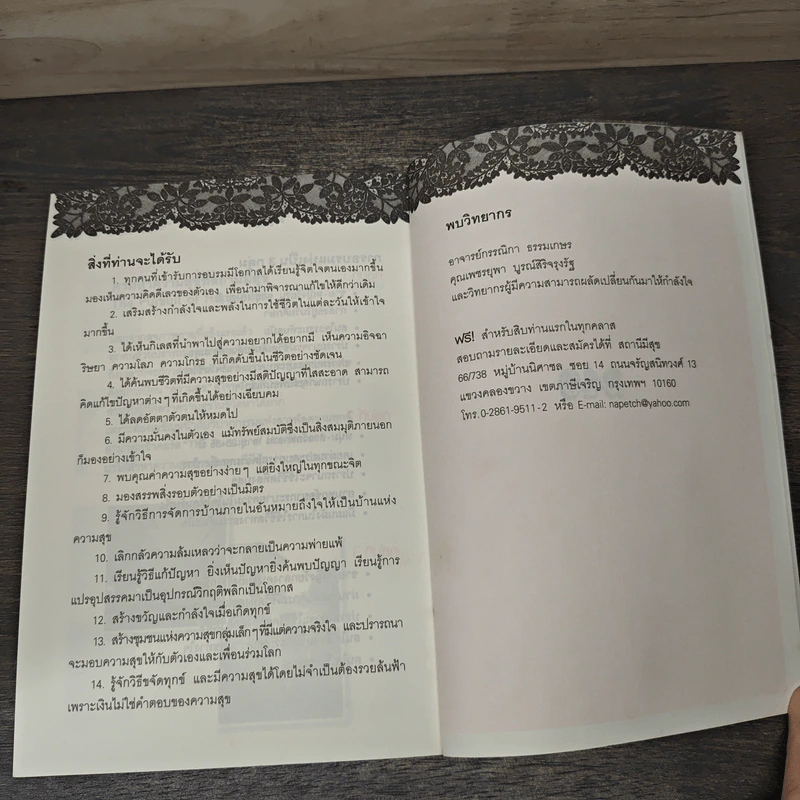 สิ่งที่ท่านจะได้รับ
1. ทุกคนที่เข้ารับการอบรมมีโอกาสได้เรียนรู้จิตใจตนเองมากขึ้น
มองเห็นความคิดดีเลวของตัวเอง เพื่อนำมาพิจารณาแก้ไขให้ดีกว่าเดิม
2. เสริมสร้างกำลังใจและพลังในการใช้ชีวิตในแต่ละวันให้เข้าใจ
มากขึ้น
3. ได้เห็นกิเลสที่นำพาไปสู่ความอยากได้อยากมี เห็นความอิจฉา
ริษยา ความโลภ ความโกรธ ที่เกิดดับขึ้นในชีวิตอย่างชัดเจน
4. ได้ค้นพบชีวิตที่มีความสุขอย่างมีสติปัญญาที่ใสสะอาด สามารถ
คิดแก้ไขปัญหาต่างๆที่เกิดขึ้นได้อย่างเฉียบคม
5. ได้ลดอัตตาตัวตนให้หมดไป
6. มีความมั่นคงในตัวเอง แม้ทรัพย์สมบัติซึ่งเป็นสิ่งสมมุติภายนอก
ก็มองอย่างเข้าใจ
7. พบคุณค่าความสุขอย่างง่ายๆ แต่ยิ่งใหญ่ในทุกขณะจิต
8. มองสรรพสิ่งรอบตัวอย่างเป็นมิตร
9. รู้จักวิธีการจัดการบ้านภายในอันหมายถึงใจให้เป็นบ้านแห่ง
ความสุข
10. เลิกกลัวความล้มเหลวว่าจะกลายเป็นความพ่ายแพ้
11. เรียนรู้วิธีแก้ปัญหา ยิ่งเห็นปัญหายิ่งค้นพบปัญญา เรียนรู้การ
แปรอุปสรรคมาเป็นอุปกรณ์วิกฤติพลิกเป็นโอกาส
12. สร้างขวัญและกำลังใจเมื่อเกิดทุกข์
13. สร้างชุมชนแห่งความสุขกลุ่มเล็กๆที่มีแต่ความจริงใจ และปรารถนา
จะมอบความสุขให้กับตัวเองและเพื่อนร่วมโลก
14. รู้จักวิธีขจัดทุกข์ และมีความสุขได้โดยไม่จำเป็นต้องรวยล้นฟ้า
เพราะเงินไม่ใช่คำตอบของความสุข
พบวิทยากร
อาจารย์กรรณิกา ธรรมเกษร
คุณเพชรยุพา บูรณ์สิริจรุงรัฐ
และวิทยากรผู้มีความสามารถผลัดเปลี่ยนกันมาให้กำลังใจ
ฟรี! สำหรับสิบท่านแรกในทุกคลาส
สอบถามรายละเอียดและสมัครได้ที่ สถานีมีสุข
66/738 หมู่บ้านนิศาชล ซอย 14 ถนนจรัญสนิทวงศ์ 13
แขวงคลองขวาง เขตภาษีเจริญ กรุงเทพฯ 10160
โทร.0-2861-9511-2 หรือ E-mail: napetch@yahoo.com